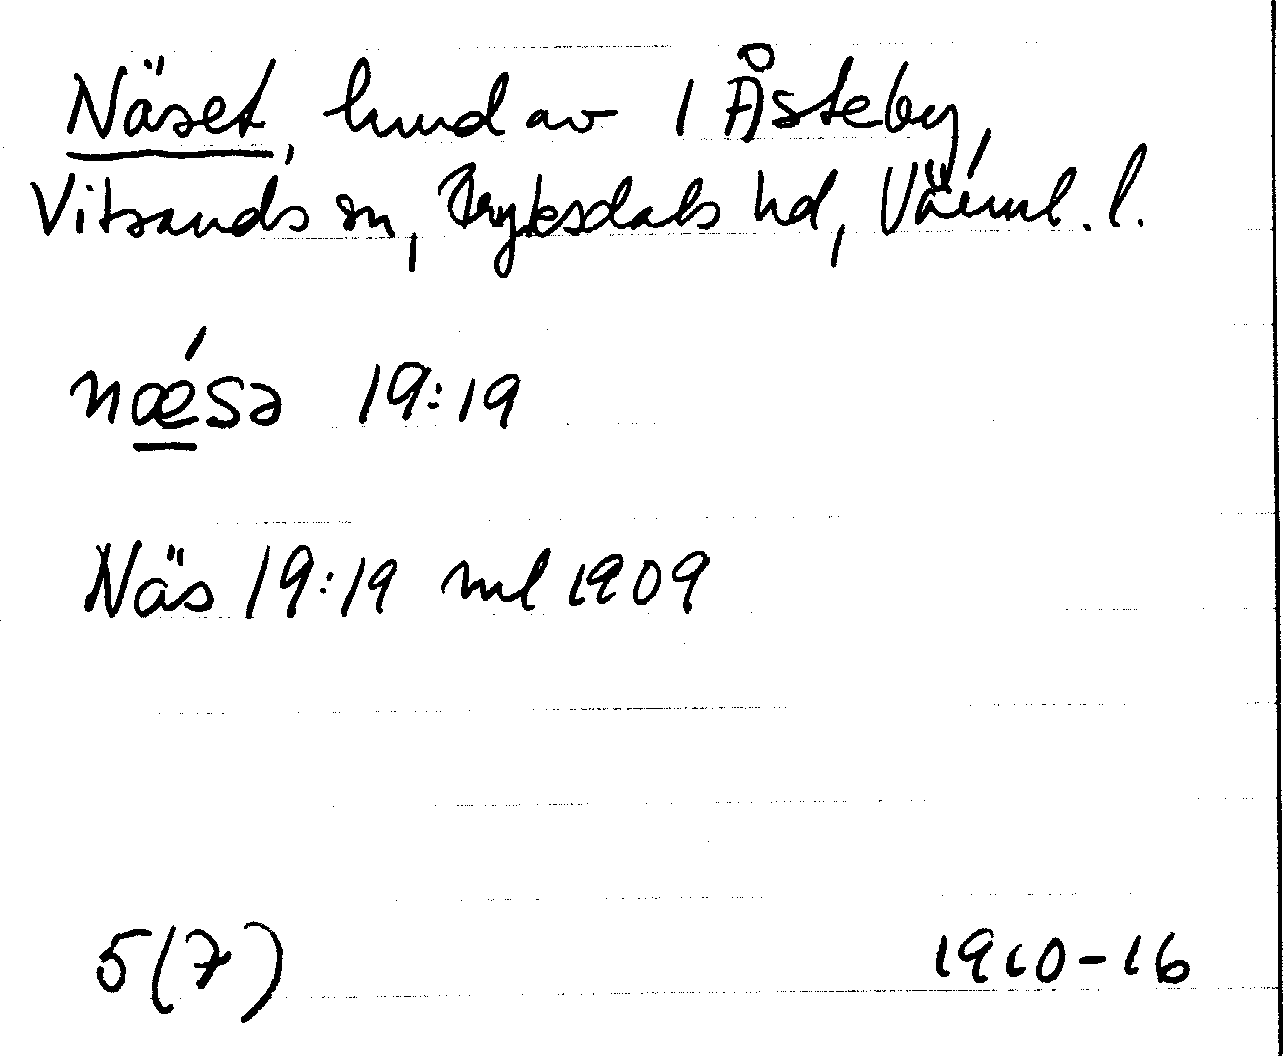 Näset, hmd av 1 Åsteby,
Vitsands sn, Fryksdals hd, Värml. l.
nǽ̲sə 19:19
Näs 19:19 ml 1909
5(7) 1910-16